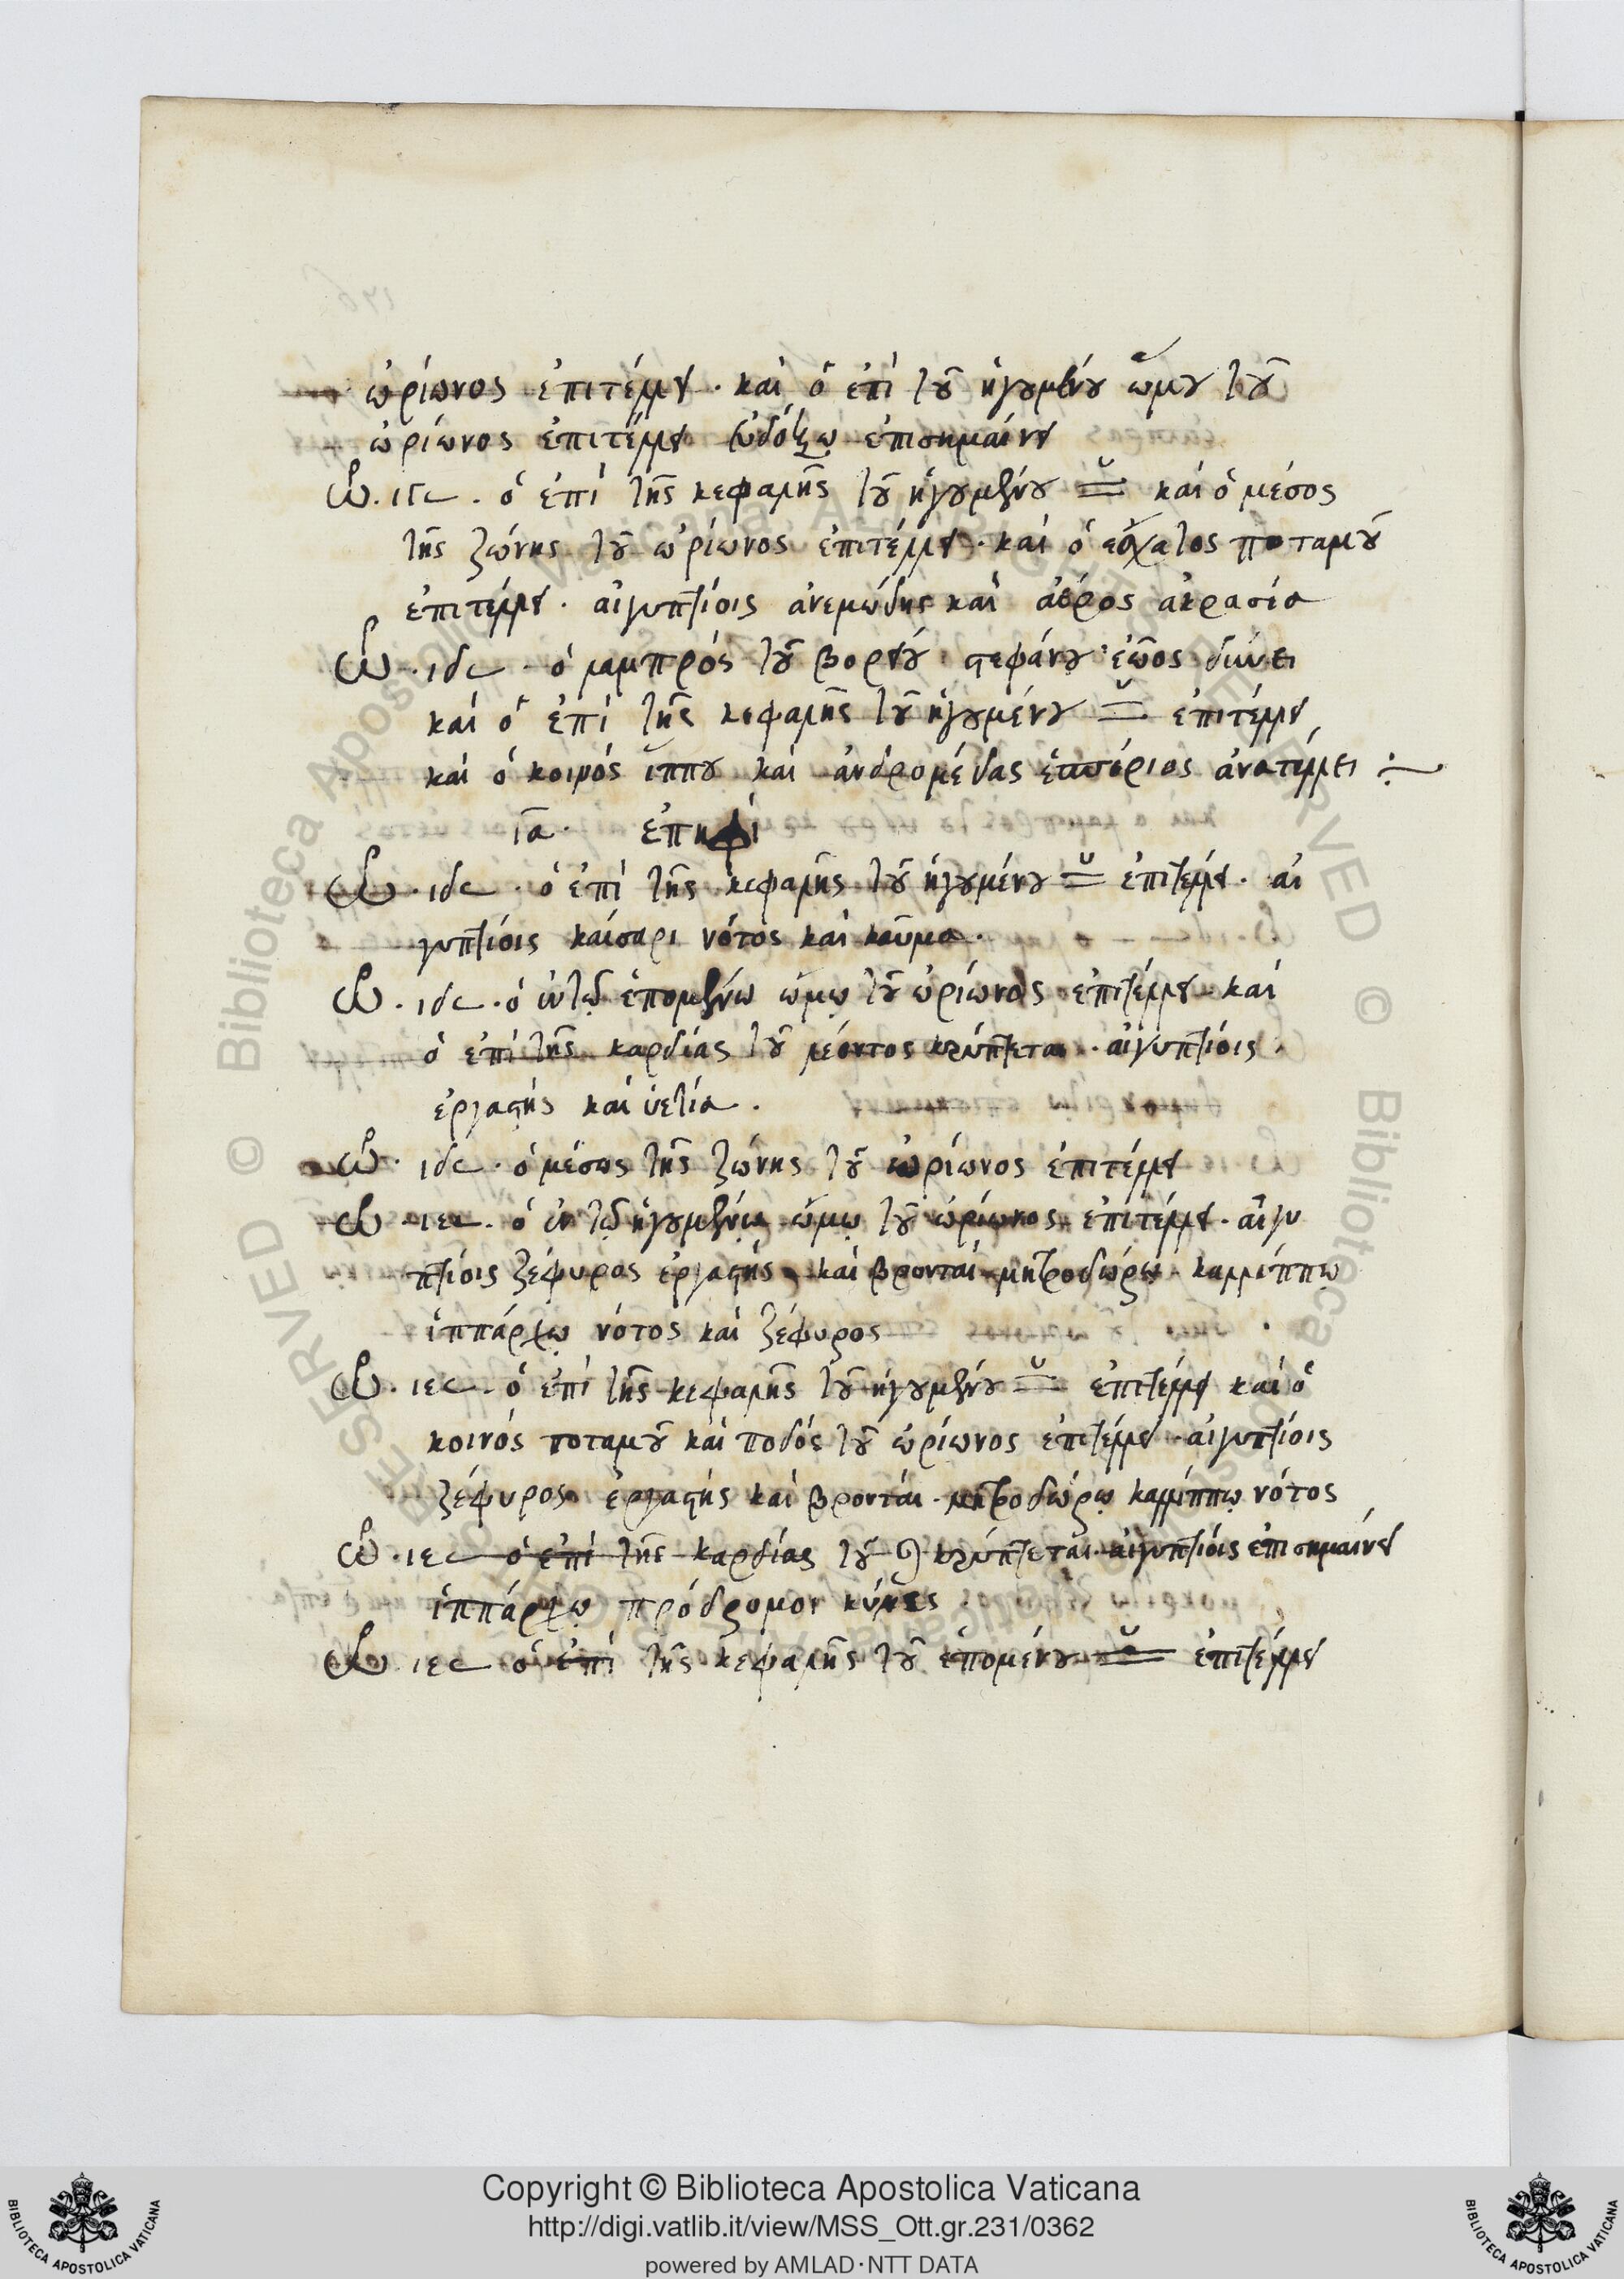 ὠρίωνος ἐπιτέλλει · καὶ ὁ ἐπὶ τοῦ ἡγουμένου ὤμου τοῦ
ὠρίωνος ἐπιτέλλει εὐδόξῳ ἐπισημαίνει
ὡ · ιγ 𐅵 · ὁ ἐπὶ τῆς κεφαλῆς τοῦ ἡγουμένου καὶ ὁ μέσος
τῆς ζώνης τοῦ ὠρίωνος ἐπιτέλλει · καὶ ὁ ἔσχατος ποταμοῦ
ἐπιτέλλει · αἰγυπτίοις ἀνεμώδης καὶ ἀέρος ἀκρασία
ὡ · ιδ 𐅵 · ὁ λαμπρὸς τοῦ βορείου στεφάνου ἑῶος δύνει
καὶ ὁ ἐπὶ τῆς κεφαλῆς τοῦ ἡγουμένου ἐπιτέλλει
καὶ ὁ κοινὸς ἵππου καὶ ἀνδρομέδας ἑσπέριος ἀνατέλλει ÷
ια · ἐπηφί
ὡ · ιδ 𐅵 · ὁ ἐπὶ τῆς κεφαλῆς τοῦ ἡγουμένου ἐπιτέλλει · αἰ
γυπτίοις καίσαρι νότος καὶ καῦμα ·
ὡ · ιδ 𐅵 · ὁ ἐν τῷ ἑπομένῳ ὤμῳ τοῦ ὠρίωνος ἐπιτέλλει · καὶ
ὁ ἐπὶ τῆς καρδίας τοῦ λέοντος κρύπτεται · αἰγυπτίοις
ἐργαστής καὶ ὑετία ·
ὡ · ιδ 𐅵 · ὁ μέσος τῆς ζώνης τοῦ ὠρίωνος ἐπιτέλλει
ὡ · ιε 𐅵 · ὁ ἐν τῷ ἡγουμένῳ ὤμῳ τοῦ ὠρίωνος ἐπιτέλλει · αἰγυ
πτίοις ζέφυρος ἐργαστής καὶ βρονταί μητροδώρῳ καλλίππῳ
ἱππάρχῳ νότος καὶ ζέφυρος
ὡ · ιε 𐅵 · ὁ ἐπὶ τῆς κεφαλῆς τοῦ ἡγουμένου ἐπιτέλλει καὶ ὁ
κοινὸς ποταμοῦ καὶ ποδὸς τοῦ ὠρίωνος ἐπιτέλλει · αἰγυπτίοις
ζέφυρος ἐργαστής καὶ βρονταί · μητροδώρῳ καλλίππῳ νότος
ὡ · ιε 𐅵 ὁ ἐπὶ τῆς καρδίας τοῦ ♌ κρύπτεται · αἰγυπτίοις ἐπισημαίνει
ἱππάρχῳ πρόδρομοι κύνες
ὡ · ιε 𐅵 ὁ ἐπὶ τῆς κεφαλῆς τοῦ ἑπομένου ἐπιτέλλει
Copyright © Biblioteca Apostolica Vaticana
http://digi.vatlib.it/view/MSS_Ott.gr.231/0362
powered by AMLAD·NTT DATA
BIBLIOTECA APOSTOLICA VATICANA
BIBLIOTECA APOSTOLICA VATICANA